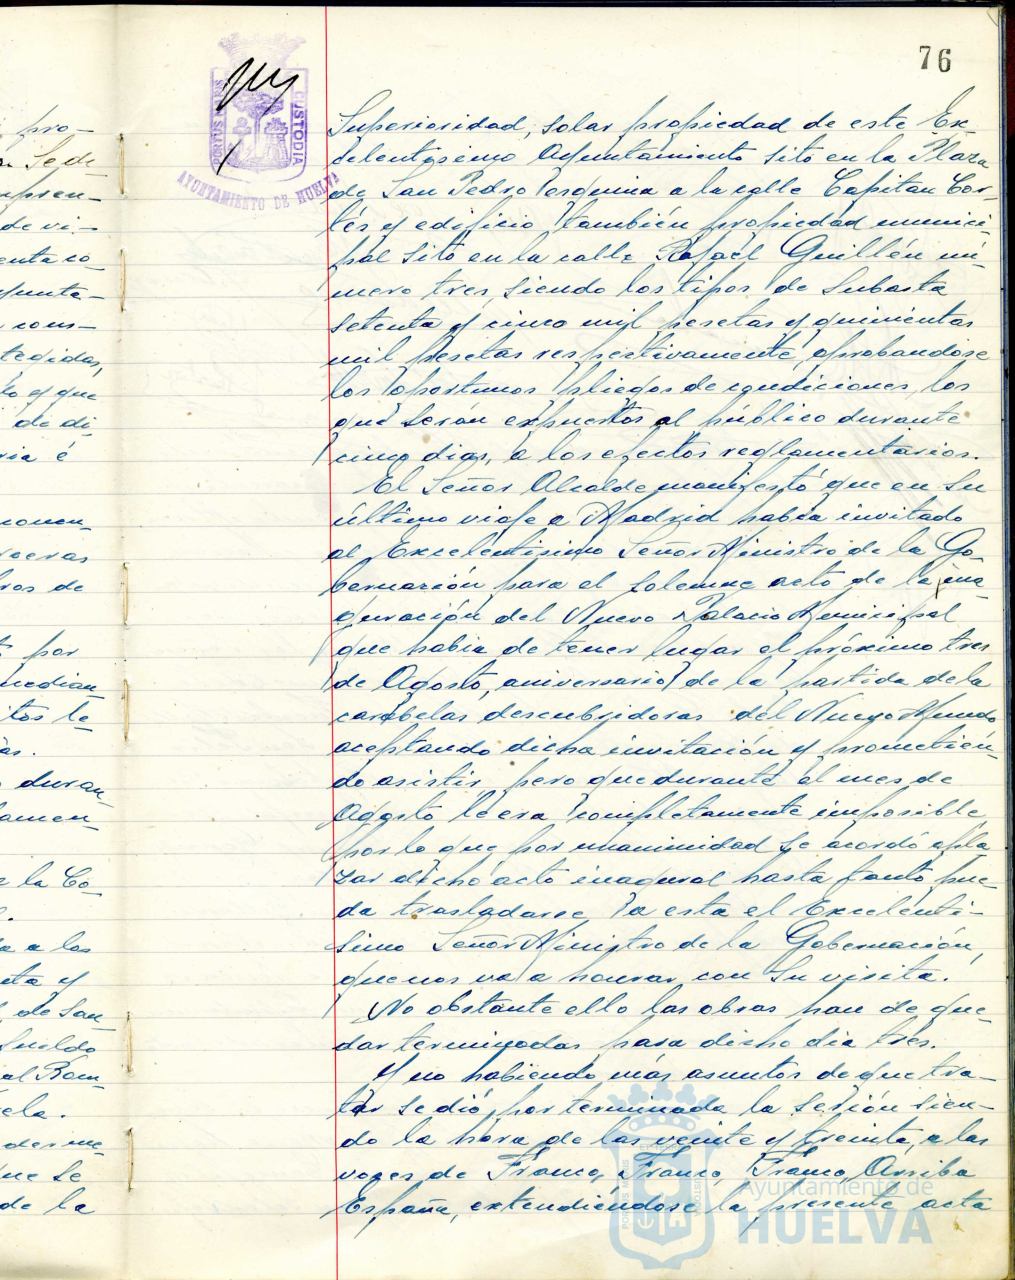 76
PORTUS MARIS CUSTODIA
AYUNTAMIENTO DE HUELVA
pro-
Sede
mpren-
de vi-
enta co-
yunta-
cons-
tegidas,
to y que
de di-
ria é
conon-
ros de
por
median-
itos te
as.
duran-
lamen-
e la Co-
a a los
ta y
de San-
Sueldo
al Rom-
ela.
ue se
de la
Superioridad, solar propiedad de este Ex-
celentísimo Ayuntamiento sito en la Plaza
de San Pedro esquina a la calle Capitan Cor-
tés y edificio, también propiedad munici-
pal sito en la calle Rafael Guillén nú-
mero tres, siendo los tipos de subasta
setenta y cinco mil pesetas y quinientas
mil pesetas respectivamente, aprobandose
los oportunos pliegos de condiciones, los
que serán expuestos al público durante
cinco dias, a los efectos reglamentarios.
El Señor Alcalde manifestó que en su
último viaje a Madrid habia invitado
al Excelentísimo Señor Ministro de la Go-
bernación para el solemne acto de la ina
guración del Nuevo Palacio Municipal
que habia de tener lugar el próximo tres
de Agosto, aniversario de la partida de la
carabelas descubridoras del Nuevo Mundo
aceptando dicha invitación y prometien-
do asistir, pero que durante el mes de
Agosto le era completamente imposible,
por lo que por unanimidad se acordó apla
zar dicho acto inagural hasta tanto pue-
da trasladarse a esta el Excelentí-
simo Señor Ministro de la Gobernación,
que nos va a honrar con su visita.
No obstante ello las obras han de que-
dar terminadas para dicho dia tres.
Y no habiendo más asuntos de que tra-
tar se dió por terminada la sesión sien-
do la hora de las veinte y treinta, a las
voces de Franco, Franco, Franco, Arriba
España, extendiéndose la presente acta
Ayuntamiento de
HUELVA